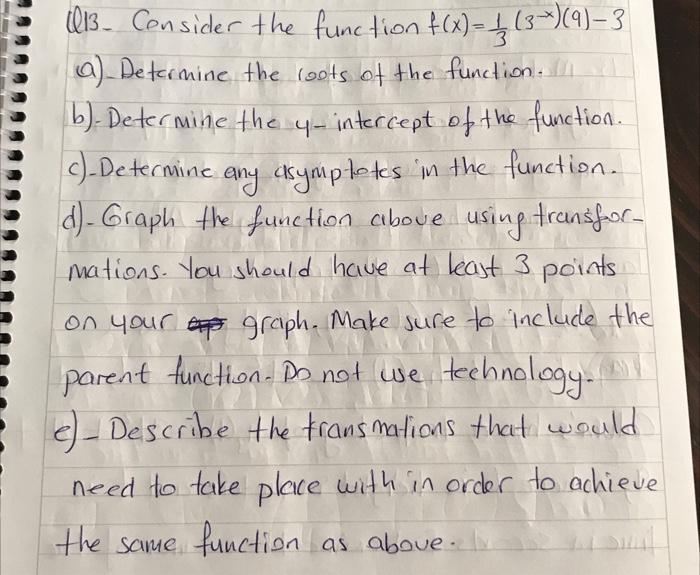 Q13- Consider the function f(x) = 1/3 (3^-x)(9) - 3
a)- Determine the roots of the function.
b)- Determine the y-intercept of the function.
c)- Determine any asymptotes in the function.
d)- Graph the function above using transfor-
mations. You should have at least 3 points
on your graph. Make sure to include the
parent function. Do not use technology.
e)- Describe the transmations that would
need to take place with in order to achieve
the same function as above.